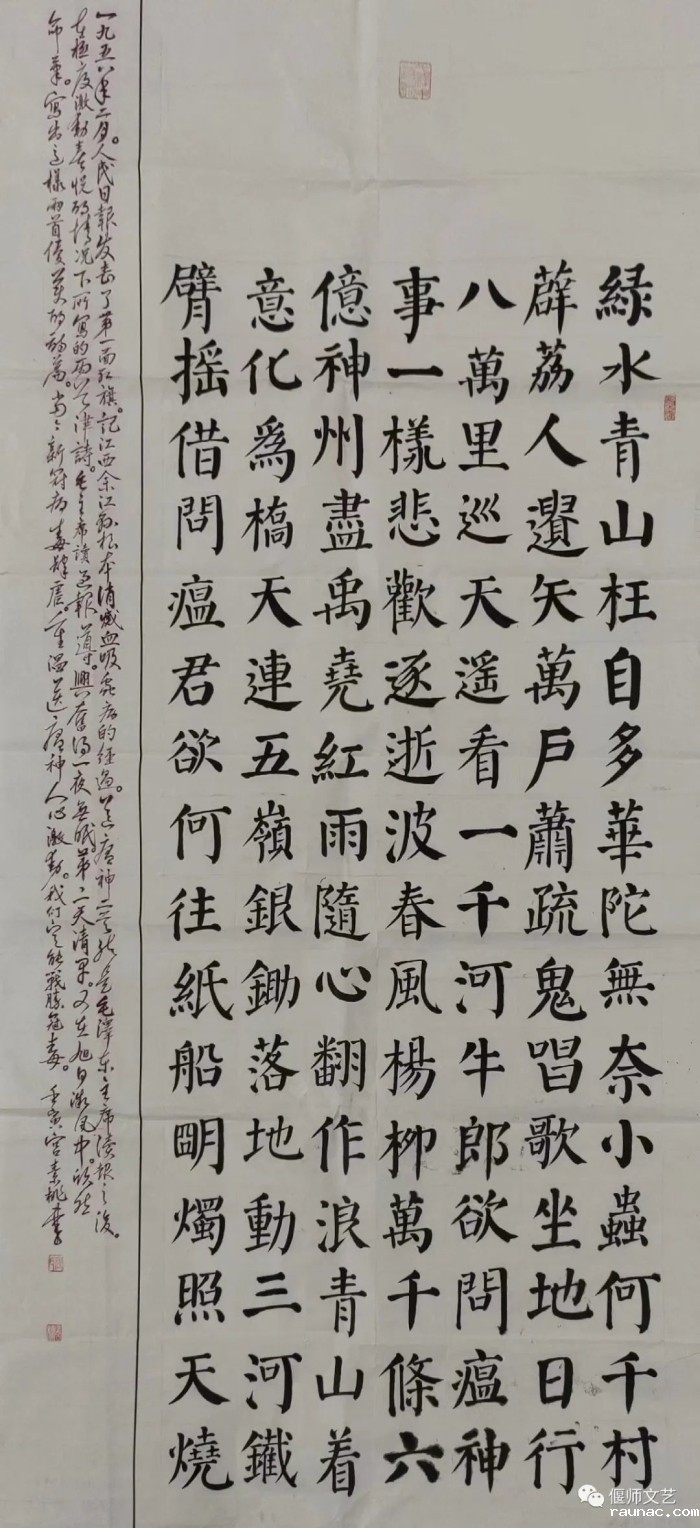 綠水青山枉自多華陀無奈小蟲何千村
薜荔人遺矢萬戶蕭疏鬼唱歌坐地日行
八萬里巡天遥看一千河牛郎欲問瘟神
事一樣悲歡逐逝波春風楊柳萬千條六
億神州盡禹堯紅雨隨心翻作浪青山着
意化爲橋天連五嶺銀鋤落地動三河鐵
臂摇借問瘟君欲何往紙船明燭照天燒
一九五八年二月。人民日報发表了第一面红旗。記江西余江縣根本消滅血吸蟲病的经過。送瘟神二首就是毛澤东主席读报之後。
在極度激動喜悦的情况下所寫的两首七律詩。毛主席读这報導。興奮得一夜無眠。第二天清早。又在旭日微风中。欣然
命筆。寫出这樣两首優美的詩篇。当今新冠病毒肆虐。重温送瘟神人心激動。我们定能戰勝冠毒。壬寅宫素桃書
偃师文艺
raunac.com